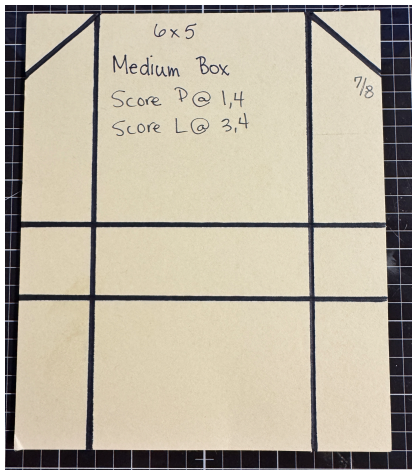 6x5
Medium Box
Score P @ 1,4
Score L @ 3,4
7/8